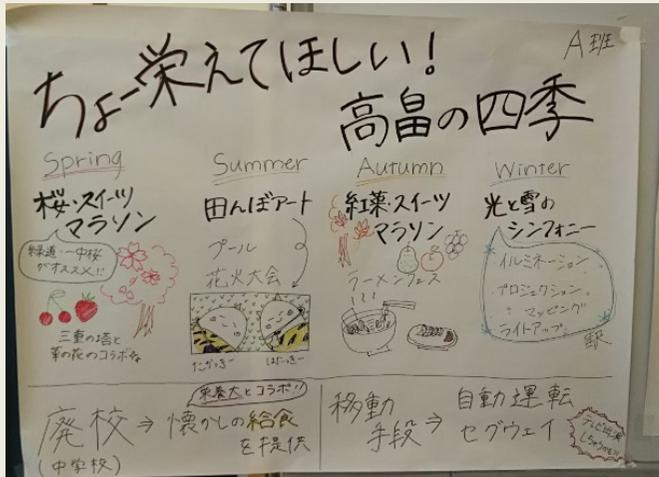 A班
ちょー栄えてほしい!
高畠の四季
Spring
桜・スイーツ
マラソン
緑道・一中桜
がオススメ!!
三重の塔と
菜の花のコラボも
Summer
田んぼアート
プール
花火大会
たかっきー
はたっきー
Autumn
紅葉・スイーツ
マラソン
ラーメンフェス
Winter
光と雪の
シンフォニー
イルミネーション
プロジェクション
マッピング
ライトアップ
駅
廃校⇒
(中学校)
栄養大とコラボ!!
懐かしの給食
を提供
移動
手段⇒
自動運転
セグウェイ
テレビ出演
しちゃうかも?!